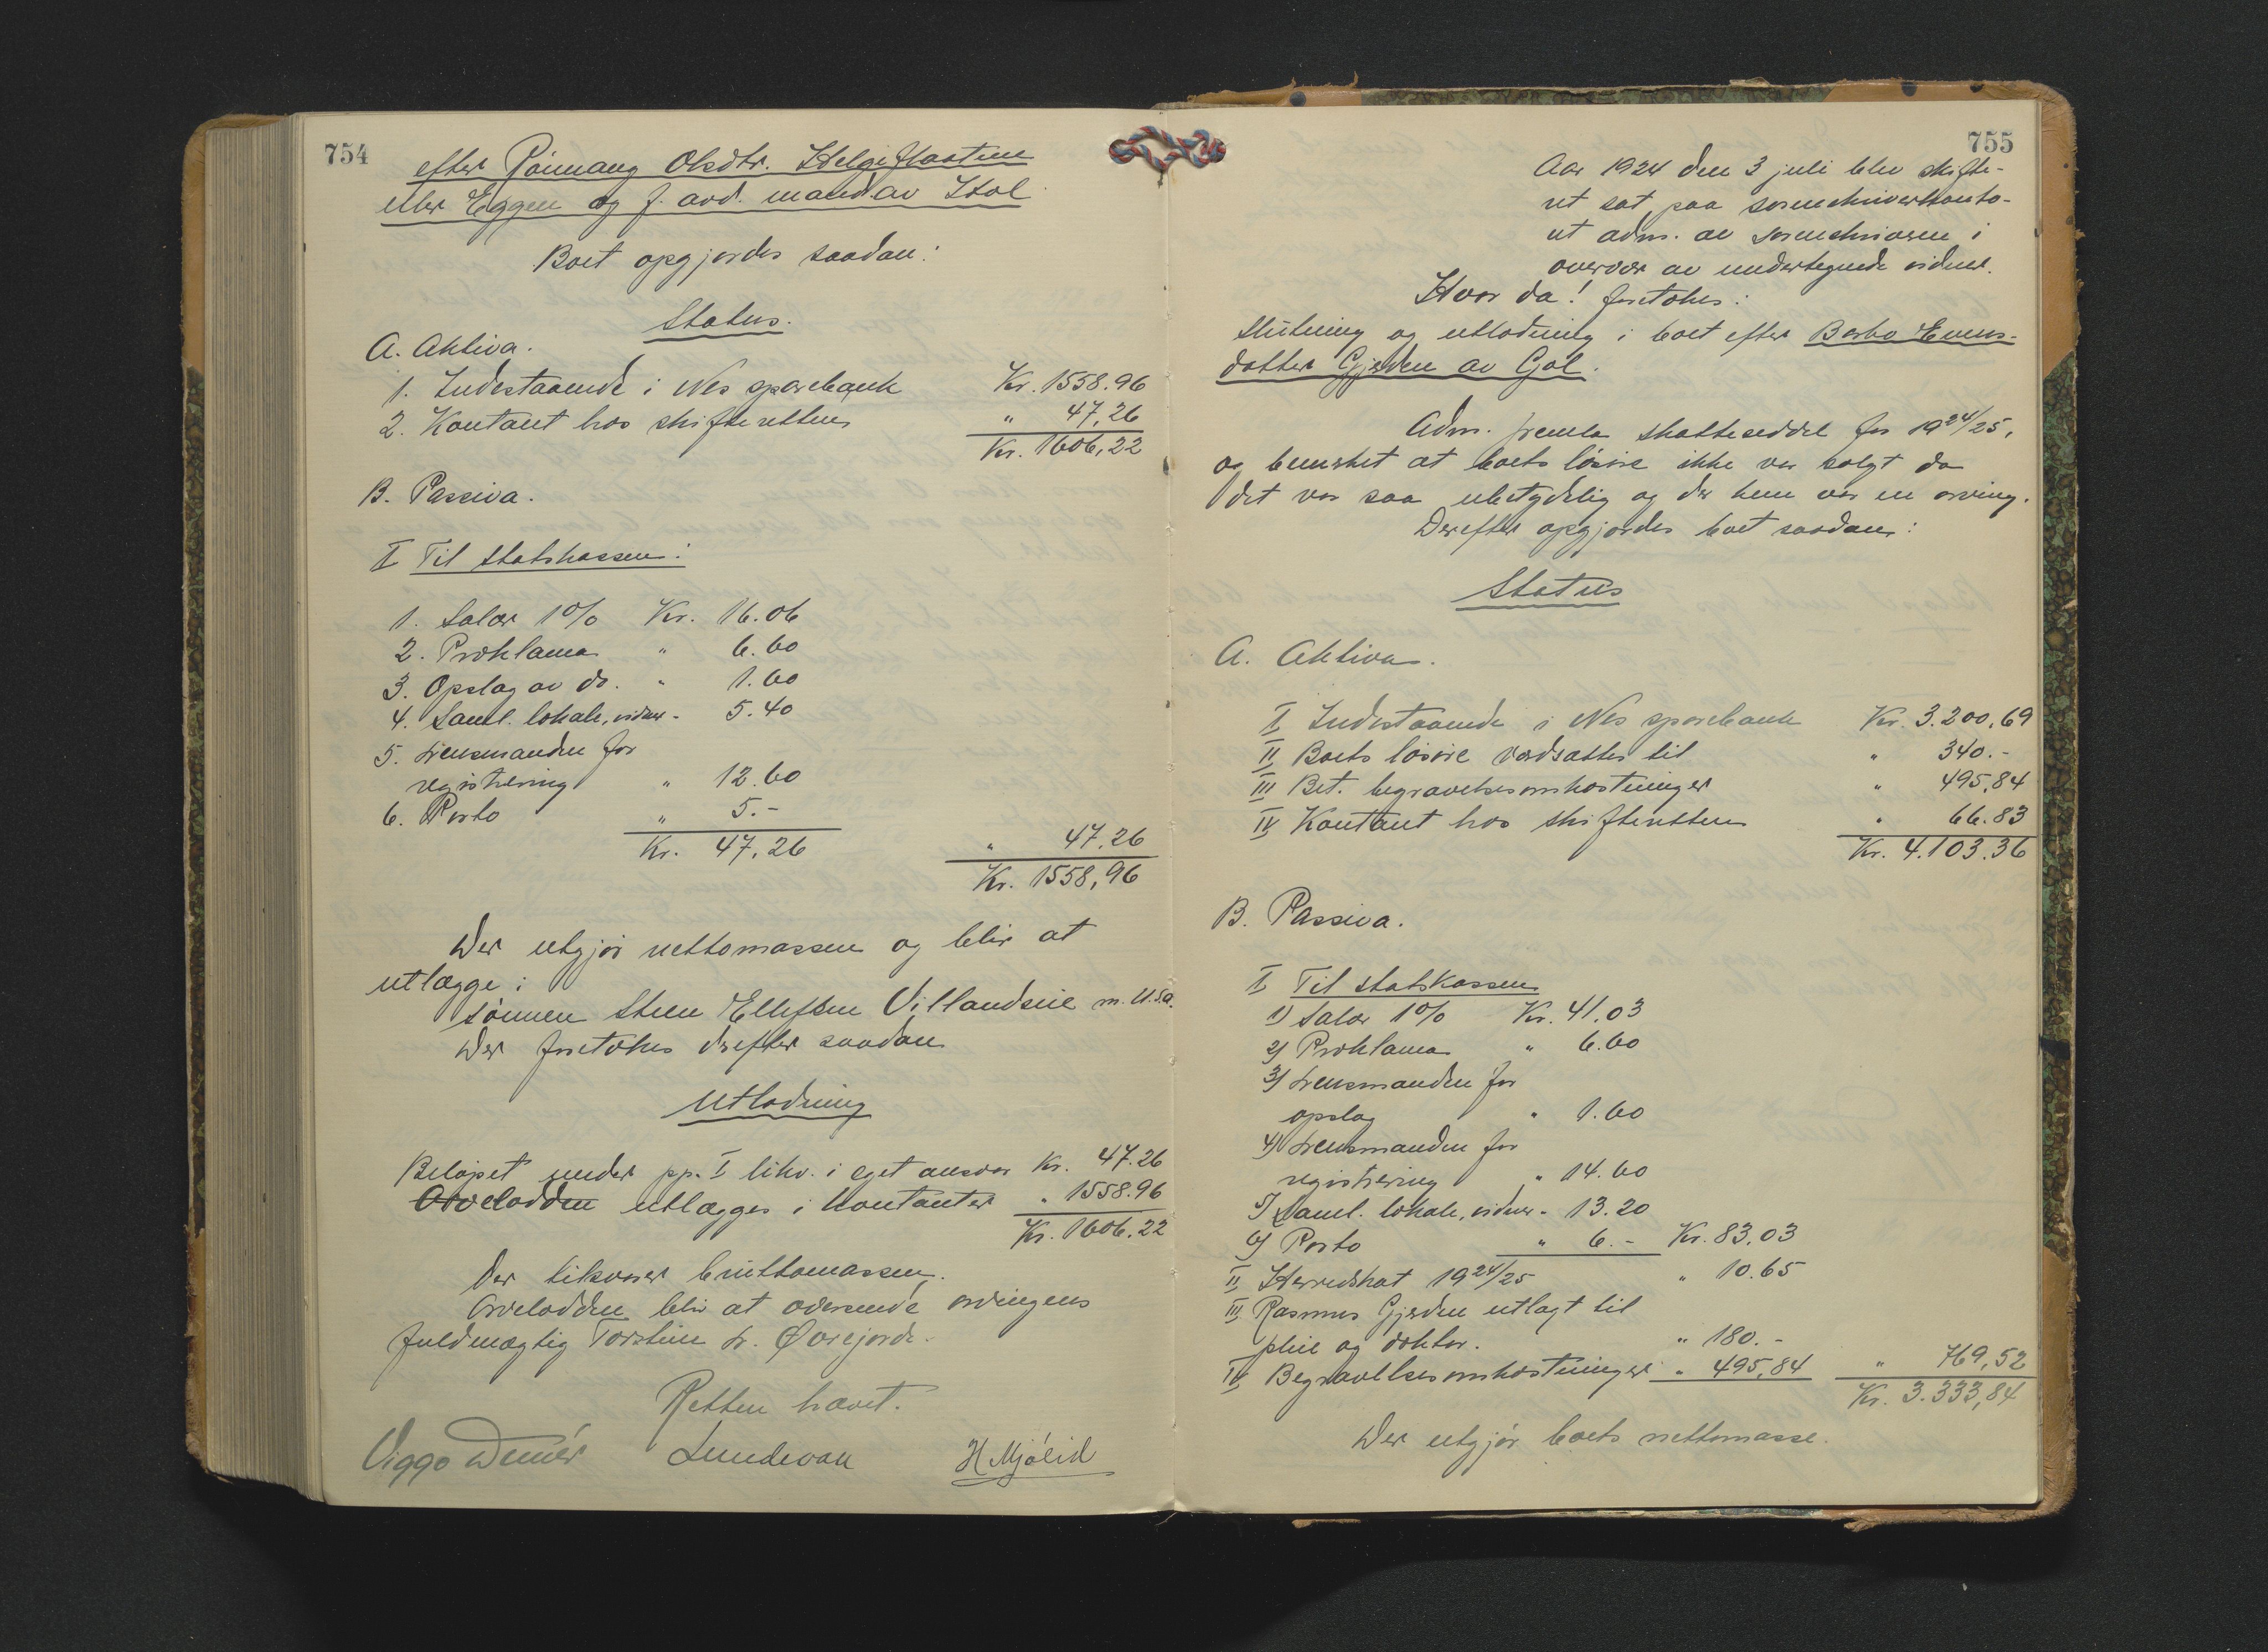 754
efter Rönnaug Olsdtr. Helgeflaaten
eller Eggen og f. avd. mand av Hol
Boet opgjordes saadan:
Status.
A. Aktiva.
1. Indestaaende i Nes sparebank Kr. 1558.96
2. Kontant hos skifteretten " 47,26
Kr. 1606,22
B. Passiva.
I Til statskassen:
1. Salær 1% Kr. 16.06
2. Proklama " 6.60
3. Opslag av do. " 1.60
4. Saml. lokale, vidner - 5.40
5. Lensmanden for
registrering " 12.60
6. Porto " 5.-
Kr. 47,26 " 47,26
Kr. 1558,96
Der utgjör nettomassen og blir at
utlægge:
Sönnen Steen Ellefsen Villandseie m. U.S.A.
Der foretokes derefter saadan
Utlodning
Belöpet under pp. I likv. i eget ansvar Kr. 47.26
Arvelodden utlægges i kontanter " 1558.96
Kr. 1606.22
Der tilsvarer bruttomassen.
Arvelodden blir at oversende arvingens
fuldmægtig Torstein L. Øvrejorde.
Retten hævet.
Viggo Lundevan H Mjöeid
755
Aar 1924 den 3 juli blev skifte-
ret sat paa sorenskriverkonto-
ret adm. av sorenskriveren i
overvær av undertegnede vidner.
Hvor da! foretokes:
Slutning og utlodning i boet efter Barbo Evens-
datter Gjerden av Gol.
Adm. fremla skatteseddel for 1924/25,
og bemerket at boets lösöre ikke var solgt da
det var saa ubetydelig og der kun var en arving.
Derefter opgjordes boet saadan:
Status
A. Aktiva.
I Indestaaende i Nes sparebank Kr. 3.200,69
II Boets lösöre værdsattes til " 340.-
III Bet. begravelsesomkostninger " 495,84
IV Kontant hos skifteretten " 66.83
Kr. 4.103.36
B. Passiva.
I Til statskassen
1) Salær 1% Kr. 41.03
2) Proklama " 6.60
3) Lensmanden for
opslag " 1.60
4) Lensmanden for
registrering " 14.60
5) Saml. lokale, vidner - 13.20
6) Porto " 6.- Kr. 83.03
II Herredskat 1924/25 " 10.65
III Rasmus Gjerden utlagt til
pleie og doktor. " 180.-
IV Begravelsesomkostninger " 495,84 " 769,52
Kr. 3.333,84
Der utgjör boets nettomasse.